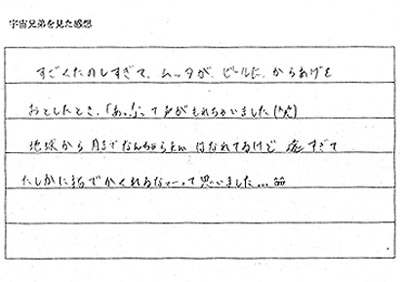 宇宙兄弟を見た感想
すごくたのしすぎて、ムッタが、ビールに、からあげを
おとしたとき、「あっ!」って声がもれちゃいました(笑)
地球から月までなんちゃら はなれてるけど 遠すぎて
たしかに までかくれるなーって思いました...